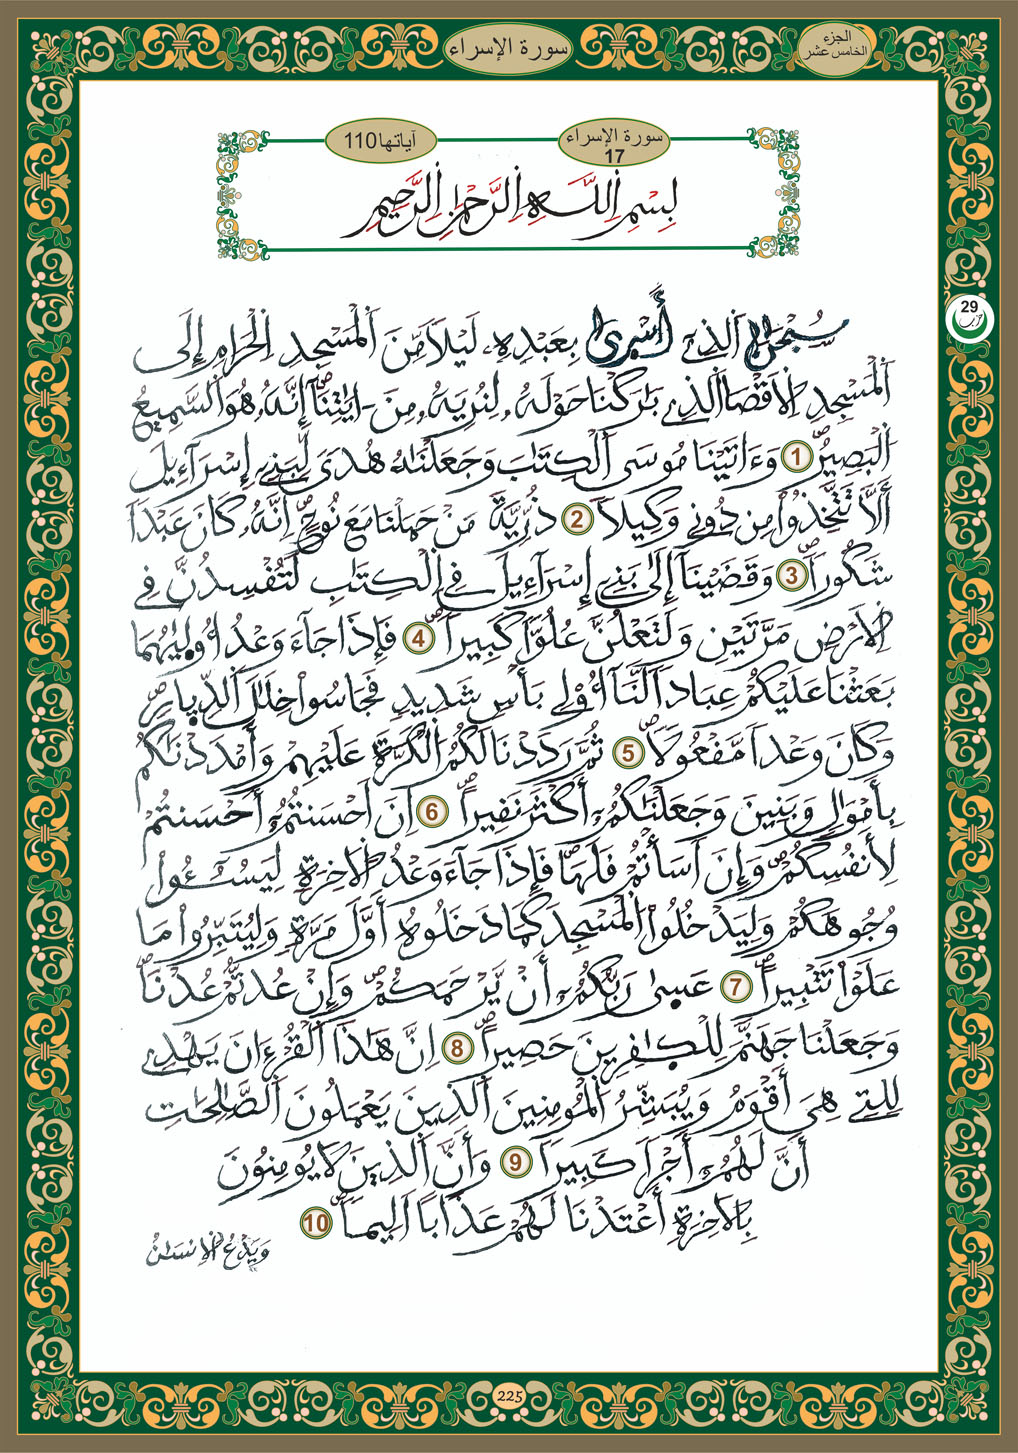 سورة الإسراء
الجزء
الخامس عشر
سورة الإسراء
17
آياتها 110
بِسْمِ اِ۬للَّهِ اِ۬لرَّحْمَٰنِ اِ۬لرَّحِيمِ
29
حزب
سُبْحَٰنَ اَ۬لذِےٓ أَسْر۪يٰ بِعَبْدِهِۦ لَيْلاٗ مِّنَ اَ۬لْمَسْجِدِ اِ۬لْحَرَامِ إِلَى
اَ۬لْمَسْجِدِ اِ۬لَاقْصَا اَ۬لذِے بَٰرَكْنَا حَوْلَهُۥ لِنُرِيَهُۥ مِنَ اٰيَٰتِنَآۖ إِنَّهُۥ هُوَ اَ۬لسَّمِيعُ
اُ۬لْبَصِيرُۖ 1 وَءَاتَيْنَا مُوسَى اَ۬لْكِتَٰبَ وَجَعَلْنَٰهُ هُدىٗ لِّبَنِےٓ إِسْرَآءِيلَ
أَلَّا تَتَّخِذُواْ مِن دُونِے وَكِيلاٗ 2 ذُرِّيَّةَ مَنْ حَمَلْنَا مَعَ نُوحٍۖ اِنَّهُۥ كَانَ عَبْداٗ
شَكُوراٗۖ 3 وَقَضَيْنَآ إِلَىٰ بَنِےٓ إِسْرَآءِيلَ فِے اِ۬لْكِتَٰبِ لَتُفْسِدُنَّ فِے
اِ۬لَارْضِ مَرَّتَيْنِ وَلَتَعْلُنَّ عُلُوّاٗ كَبِيراٗۖ 4 فَإِذَا جَآءَ وَعْدُ أُول۪يٰهُمَا
بَعَثْنَا عَلَيْكُمْ عِبَاداٗ لَّنَآ أُوْلِے بَأْسٖ شَدِيدٖ فَجَاسُواْ خِلَٰلَ اَ۬لدِّي۪ارِۖ
وَكَانَ وَعْداٗ مَّفْعُولاٗۖ 5 ثُمَّ رَدَدْنَا لَكُمُ اُ۬لْكَرَّةَ عَلَيْهِمْ وَأَمْدَدْنَٰكُم
بِأَمْوَٰلٖ وَبَنِينَ وَجَعَلْنَٰكُمُۥٓ أَكْثَرَ نَفِيراٗۖ 6 اِنَ اَحْسَنتُمُۥٓ أَحْسَنتُمْ
لِأَنفُسِكُمْۖ وَإِنَ اَسَأْتُمْ فَلَهَاۖ فَإِذَا جَآءَ وَعْدُ اُ۬لَاخِرَةِ لِيَسُـُٔواْ
وُجُوهَكُمْ وَلِيَدْخُلُواْ اُ۬لْمَسْجِدَ كَمَا دَخَلُوهُ أَوَّلَ مَرَّةٖ وَلِيُتَبِّرُواْ مَا
عَلَوْاْ تَتْبِيراٗۖ 7 عَس۪يٰ رَبُّكُمُۥٓ أَنْ يَّرْحَمَكُمْۖ وَإِنْ عُدتُّمْ عُدْنَاۖ
وَجَعَلْنَا جَهَنَّمَ لِلْكٰ۪فِرِينَ حَصِيراًۖ 8 اِنَّ هَٰذَا اَ۬لْقُرْءَانَ يَهْدِے
لِلتِے هِيَ أَقْوَمُ وَيُبَشِّرُ اُ۬لْمُومِنِينَ اَ۬لذِينَ يَعْمَلُونَ اَ۬لصَّٰلِحَٰتِ
أَنَّ لَهُمُۥٓ أَجْراٗ كَبِيراٗ 9 وَأَنَّ اَ۬لذِينَ لَا يُومِنُونَ
بِالَاخِرَةِ أَعْتَدْنَا لَهُمْ عَذَاباً اَلِيماٗۖ 10
وَيَدْعُ اُ۬لِانسَٰنُ
225